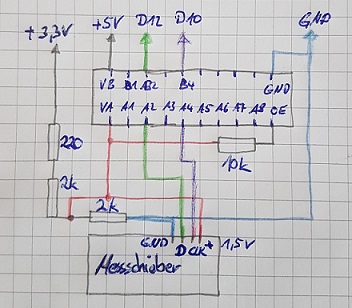 +3,3V +5V D12 D10 GND
VB B1 B2 B4 GND
VA A1 A2 A3 A4 A5 A6 A7 A8 OE
220
10k
2k
2k
GND D CLK + 1,5V
Messschieber